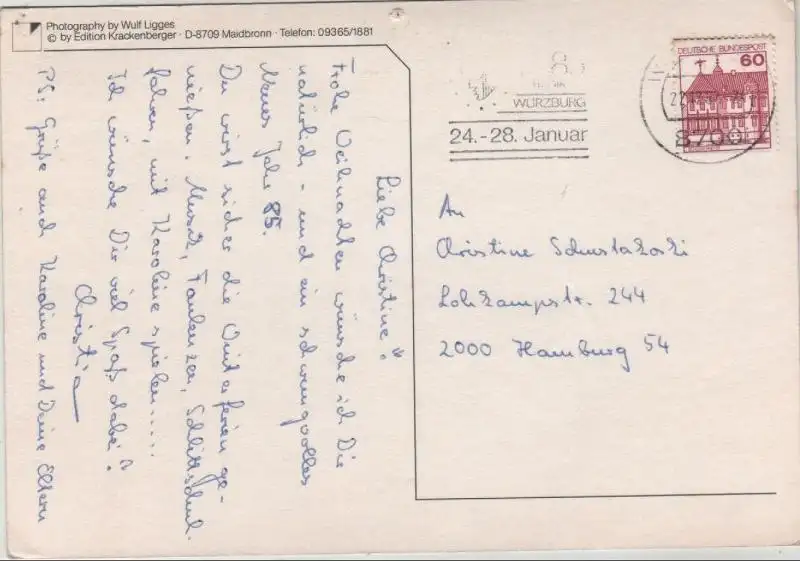 Photography by Wulf Ligges
© by Edition Krackenberger · D-8709 Maidbronn · Telefon: 09365/1881
Liebe Christine!
Frohe Weihnachten wünsche ich Dir
natürlich - und ein schwungvolles
Neues Jahr 85.
Du wirst sicher die Winterferien ge-
nießen. Musik, Faulenzen, Schlittschuh-
fahren, mit Karoline spielen.....
Ich wünsche Dir viel Spaß dabei!
Christia
PS: Grüße auch Karoline und Deine Eltern
WÜRZBURG
24.-28. Januar
8700
DEUTSCHE BUNDESPOST
60
An
Christine
Lohkampstr. 244
2000 Hamburg 54